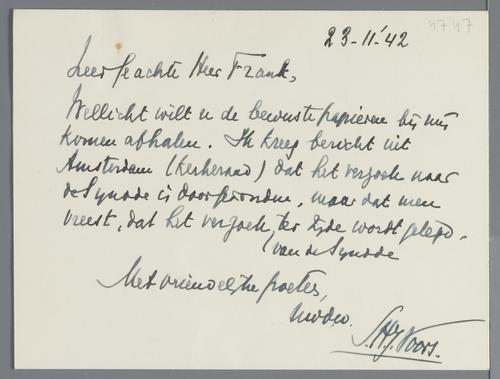 4747
23-11-'42
Zeer geachte Heer Frank,
Wellicht wilt u de bewuste papieren bij mij
komen afhalen. Ik kreeg bericht uit
Amsterdam (Kerkeraad) dat het verzoek naar
de Synode is doorgezonden, maar dat men
vreest, dat het verzoek ter zijde wordt gelegd.
(van de Synode
Met vriendelijke groeten,
Uw dw.
Voors.